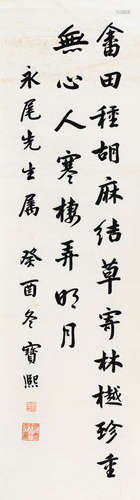 畬田種胡麻結草寄林樾珍重
無心人寒棲弄明月
永尾先生属 癸酉冬寶熙